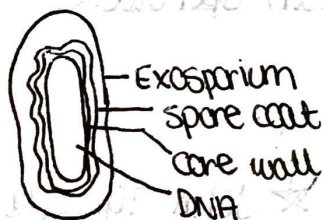 Exosporium
spore coat
core wall
DNA